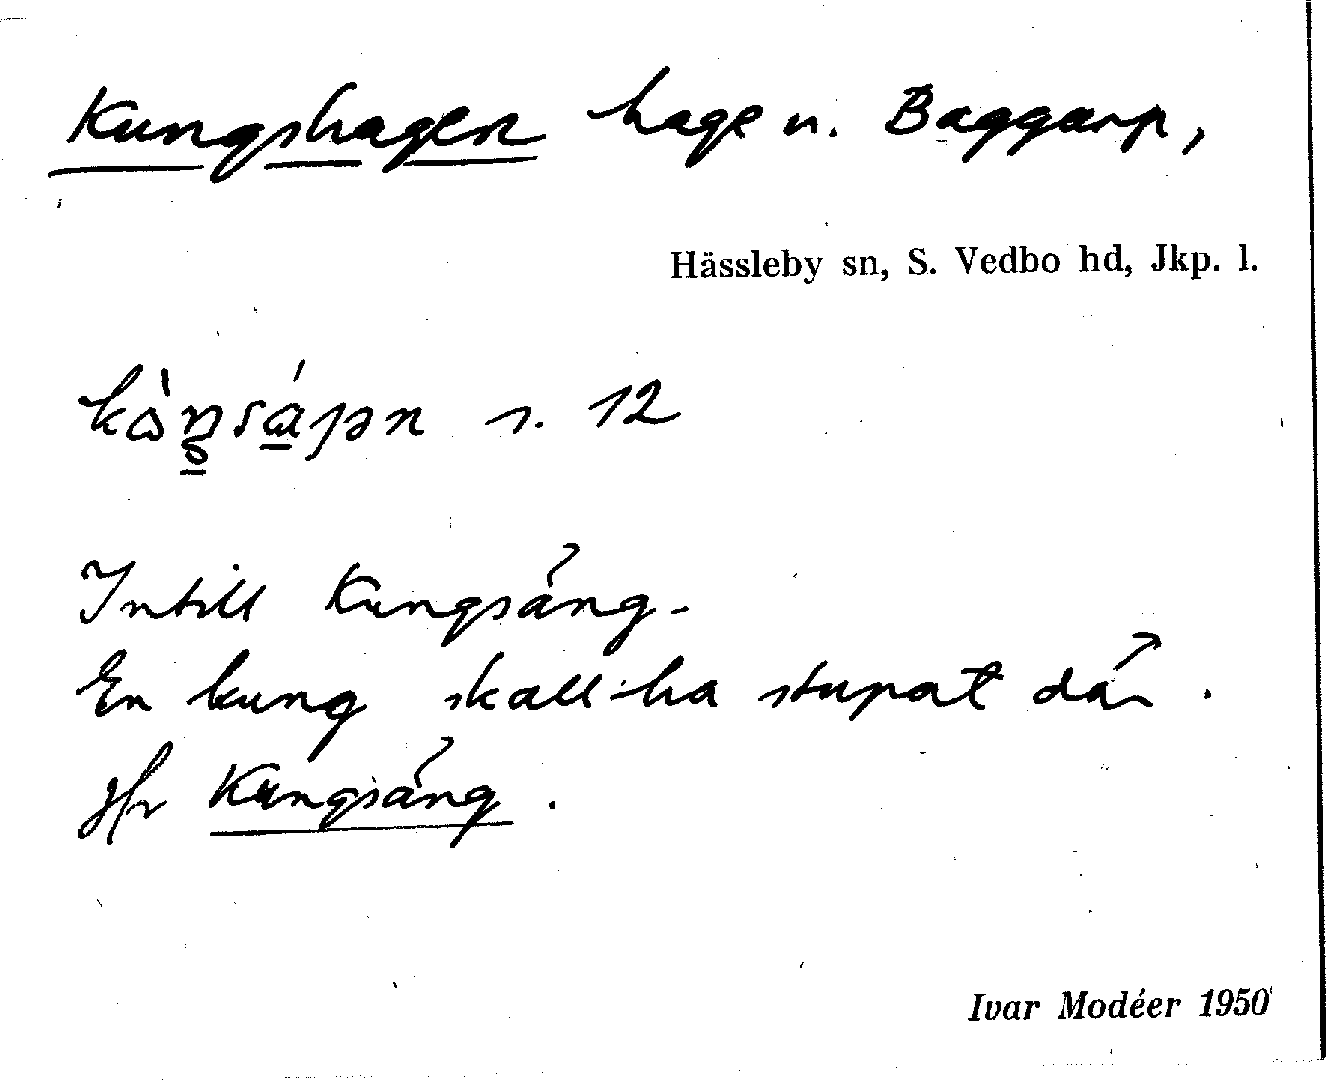 Kungshagen hage n. Baggarp,
Hässleby sn, S. Vedbo hd, Jkp. l.
s. 12
Intill Kungsäng.
En kung skall ha stupat där.
Jfr Kungsäng.
Ivar Modéer 1950